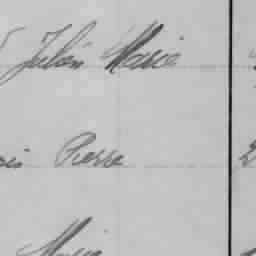 Julien Marie
ois Pierre
Marie